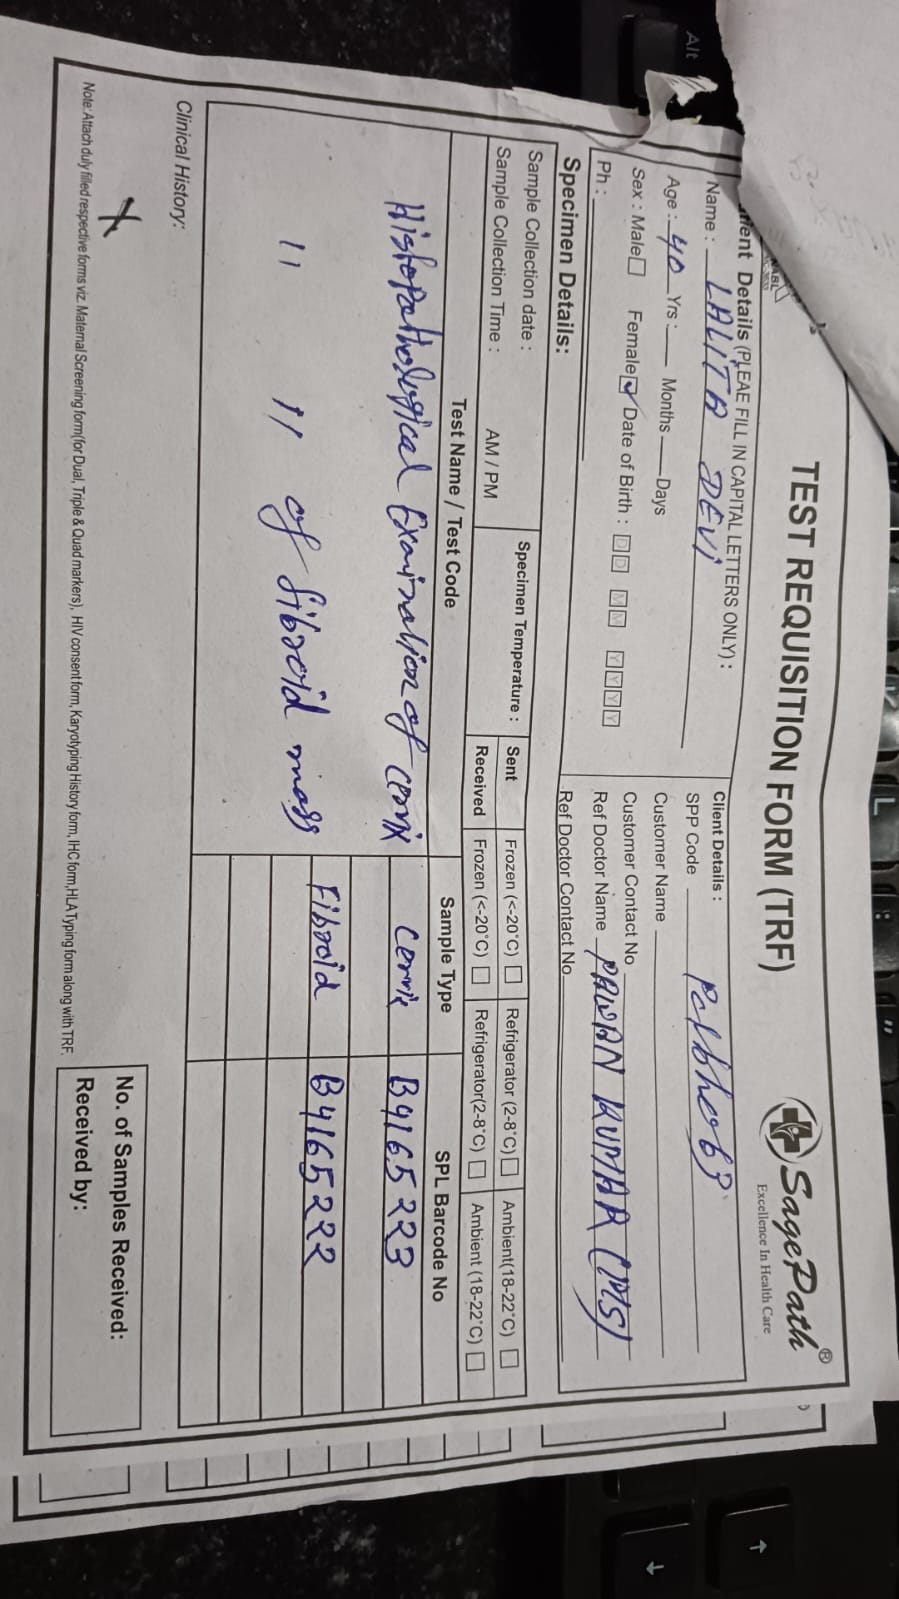 TEST REQUISITION FORM (TRF)
SagePath®
Excellence In Health Care
Details (PLEAE FILL IN CAPITAL LETTERS ONLY) :
Name : LALITA DEVI
Age : 40 Yrs : Months Days
Sex : Male Female Date of Birth : D D M M Y Y Y Y
Ph :
Client Details :
SPP Code
Customer Name
Customer Contact No
Ref Doctor Name PAWAN KUMAR (MS)
Ref Doctor Contact No
Specimen Details:
Sample Collection date :
Sample Collection Time : AM / PM
Specimen Temperature :
Sent Frozen (<-20°C) Refrigerator (2-8°C) Ambient(18-22°C)
Received Frozen (<-20°C) Refrigerator(2-8°C) Ambient (18-22°C)
Test Name / Test Code Sample Type SPL Barcode No
Histopathological Examination of B4165223
" " of fibroid mass Fibroid B4165222
Clinical History:
No. of Samples Received:
Received by:
Note:Attach duly filled respective forms viz. Maternal Screening form(for Dual, Triple & Quad markers), HIV consent form, Karyotyping History form, IHC form,HLA Typing form along with TRF.
Alt
L